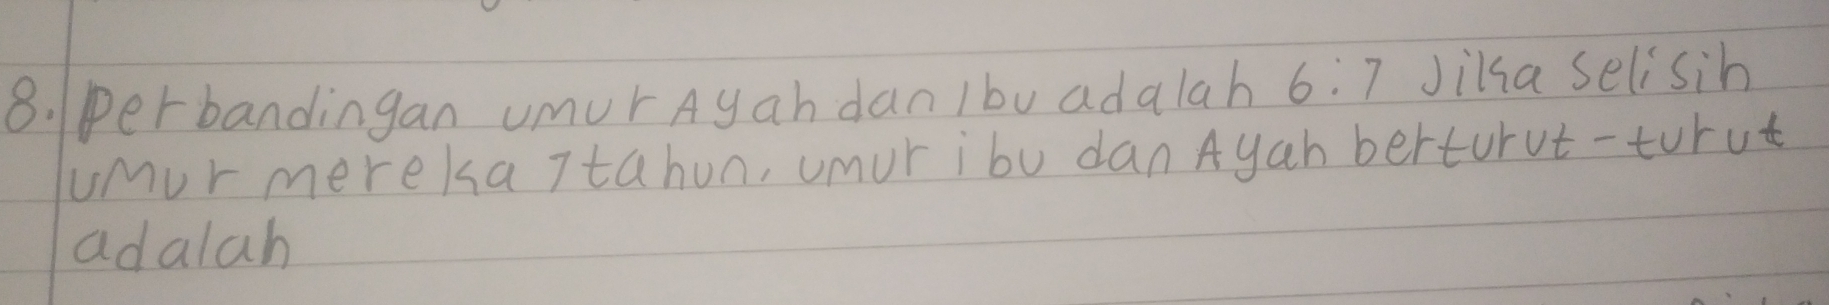 8. Perbandingan umur Ayah dan Ibu adalah 6:7 Jika selisih
umur mereka 7 tahun, umur ibu dan Ayah berturut-turut
adalah